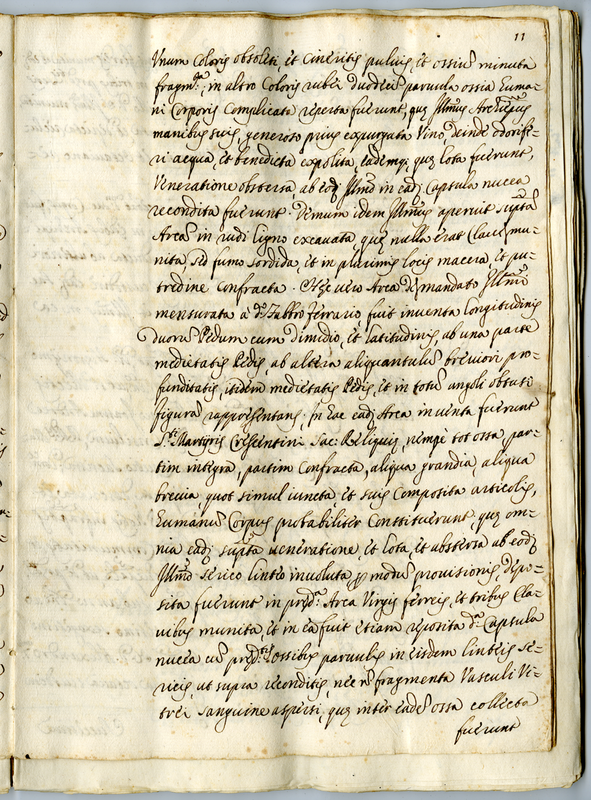 11
Unum Coloris obsoleti, et cineritij pulvis, et ossiũ minuta
fragm.ta, in altro Coloris rubei duodecì parvula ossia huma-
ni Corporis Complicata reperta fuerunt, quę Ill̃mus Archiepũs
manibus suis, generoso prius expurgata Vino, deinde odorife-
ri acqua, et benedicta expolita, eademq; quę lota fuerunt,
Veneratione obstersa, ab eod. Ill̃mo in ead. Capsula nucea
recondita fuerunt. Demum idem Ill̃mus aperuit sup.tã
Arcã in rudi ligno excavata, quę nulla erat Clave mu-
nita, sed fumo sordida, et in plurimis locis macera, et pu-
tredine Confracta. Hęc vero Arca de mandato Ill̃mi
mensurata à d.o Fabbro ferrario fuit inventa longitudinis
duorũ Pedum cum dimidio, et latitudinis ab una parte
medietatis Pedis, ab altera aliquantulũ breviori pro-
funditatis, itidem medietatis Pedis, et in totũ anguli obtusi
figurã rapprẽsentans; in hac ead. Arca inventa fuerunt
S.ti Martyris Crescentini Sac: Reliquię, nempè tot ossa, par-
tim integra, partim Confracta, aliqua grandia, aliqua
brevia quot simul iuncta et suis Composita articolis,
humanũ Corpus probabiliter Constituerunt, quę om-
nia ead. sup.ta veneratione, et lota, et obstersa ab eod.
Ill̃mo serico linteo involuta p. modũ provisionis, depo-
sita fuerunt in pręd.a Arca Virgis ferreis, et tribus Cla-
vibus munita, et in ea fuit etiam reposita d.a Capsula
nucea cũ pręd.tis ossibus parvulis in eisdem linteis se-
ricis, ut supra reconditis, nec nõ fragmenta Vasculi Vi-
trei sanguine aspersi, quę inter eadẽ ossa collecta
fuerunt